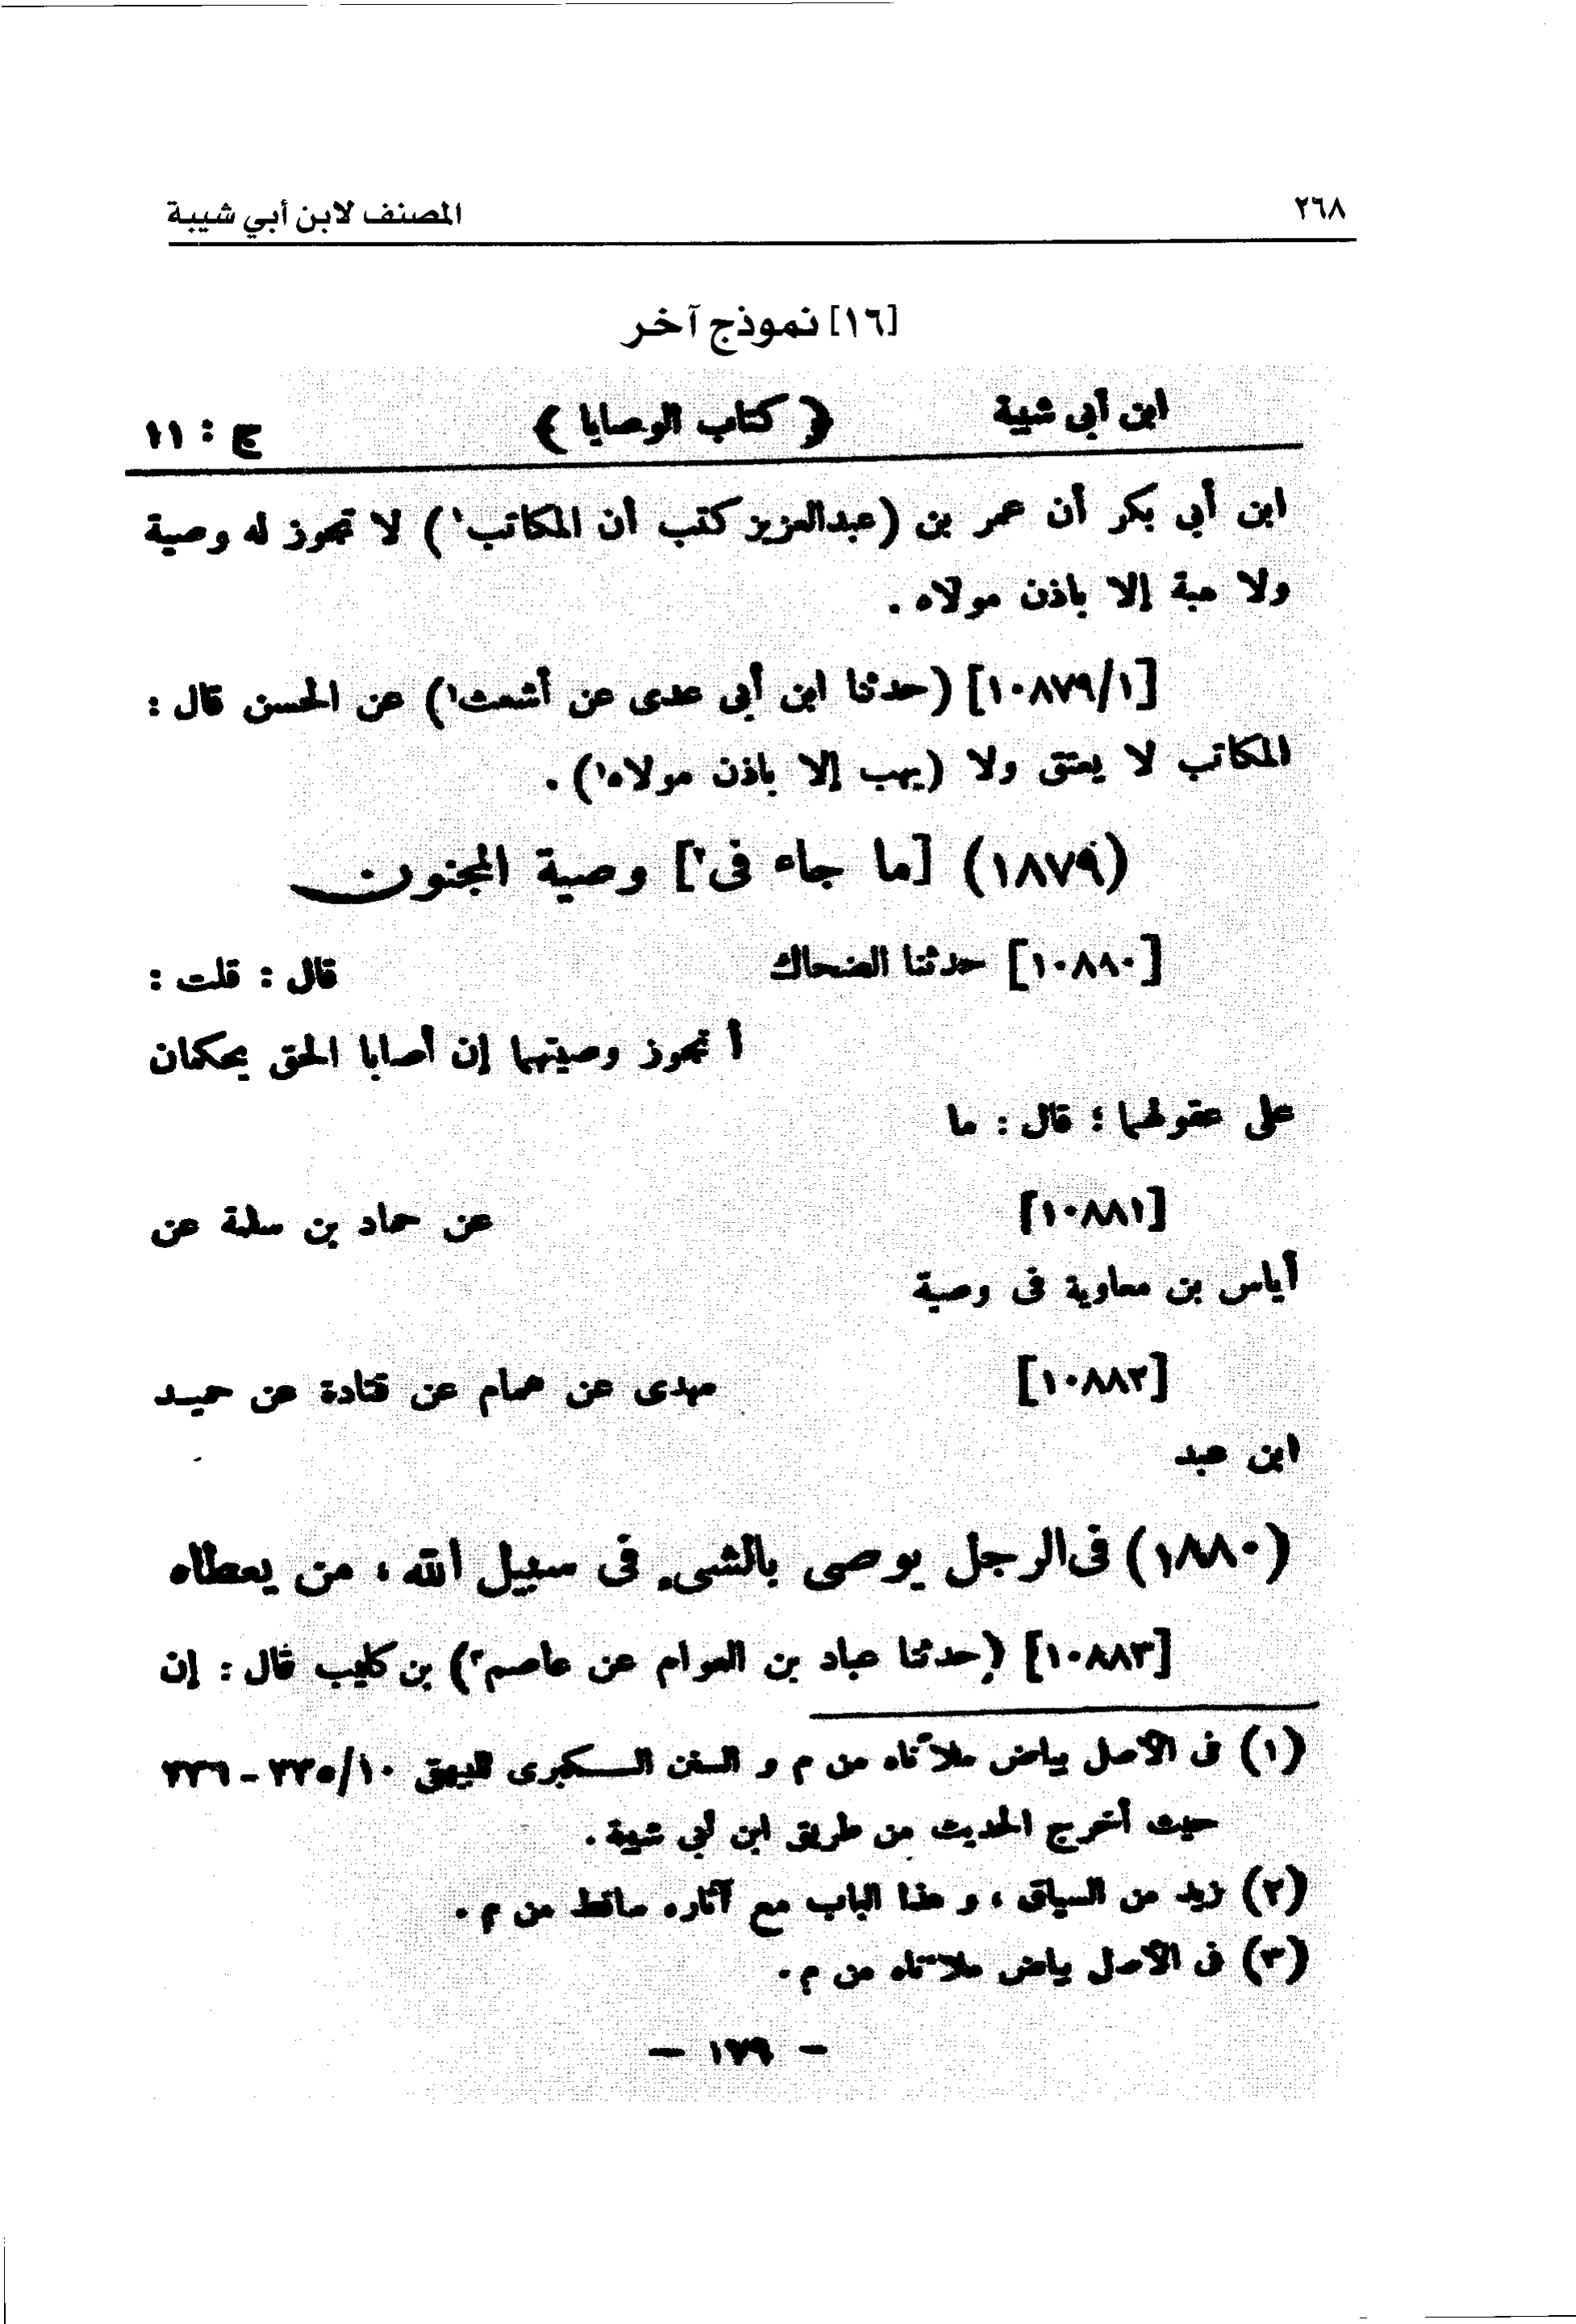 ٢٦٨ المصنف لابن أبي شيبة
[١٦] نموذج آخر
ابن أبى شيبة ﴿ كتاب الوصايا ﴾ ج : ١١
ابن أبى بكر أن عمر بن (عبدالعزيز كتب أن المكاتب١) لا تجوز له وصية
ولا هبة إلا باذن مولاه .
[١٠٨٧٩/١] (حدثنا ابن أبى عدى عن أشعث١) عن الحسن قال :
المكاتب لا يعتق ولا (يهب إلا باذن مولاه١) .
(١٨٧٩) [ما جاء فى٢] وصية المجنون
[١٠٨٨٠] حدثنا الضحاك قال : قلت :
أ تجوز وصيتهما إن أصابا الحق يحكمان
على عقولهما ؛ قال : ما
[١٠٨٨١] عن حماد بن سلمة عن
أياس بن معاوية فى وصية
[١٠٨٨٢] مهدى عن همام عن قتادة عن حميد
ابن عبد
(١٨٨٠) فى الرجل يوصى بالشىء فى سبيل الله ، من يعطاه
[١٠٨٨٣] (حدثنا عباد بن العوام عن عاصم٣) بن كليب قال : إن
(١) فى الأصل بياض ملأناه من م و السنن الكبرى للبيهقى ١٠/٣٣٥ - ٣٣٦
حيث أخرج الحديث من طريق ابن أبى شيبة .
(٢) زيد من السياق ، و هذا الباب مع آثاره ساقط من م .
(٣) فى الأصل بياض ملأناه من م .
— ١٧٩ —